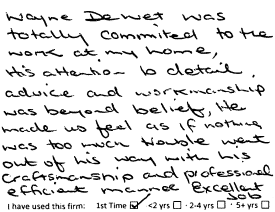 Wayne Dewet was
totally commited to the
work at my home,
His attention to detail,
advice and workmanship
was beyond belief, He
made us feel as if nothing
was too much trouble went
out of his way with his
Craftsmanship and professional
efficient manner Excellent
Job
I have used this firm: 1st Time ☑ <2 yrs ☐ 2-4 yrs ☐ 5+ yrs ☐